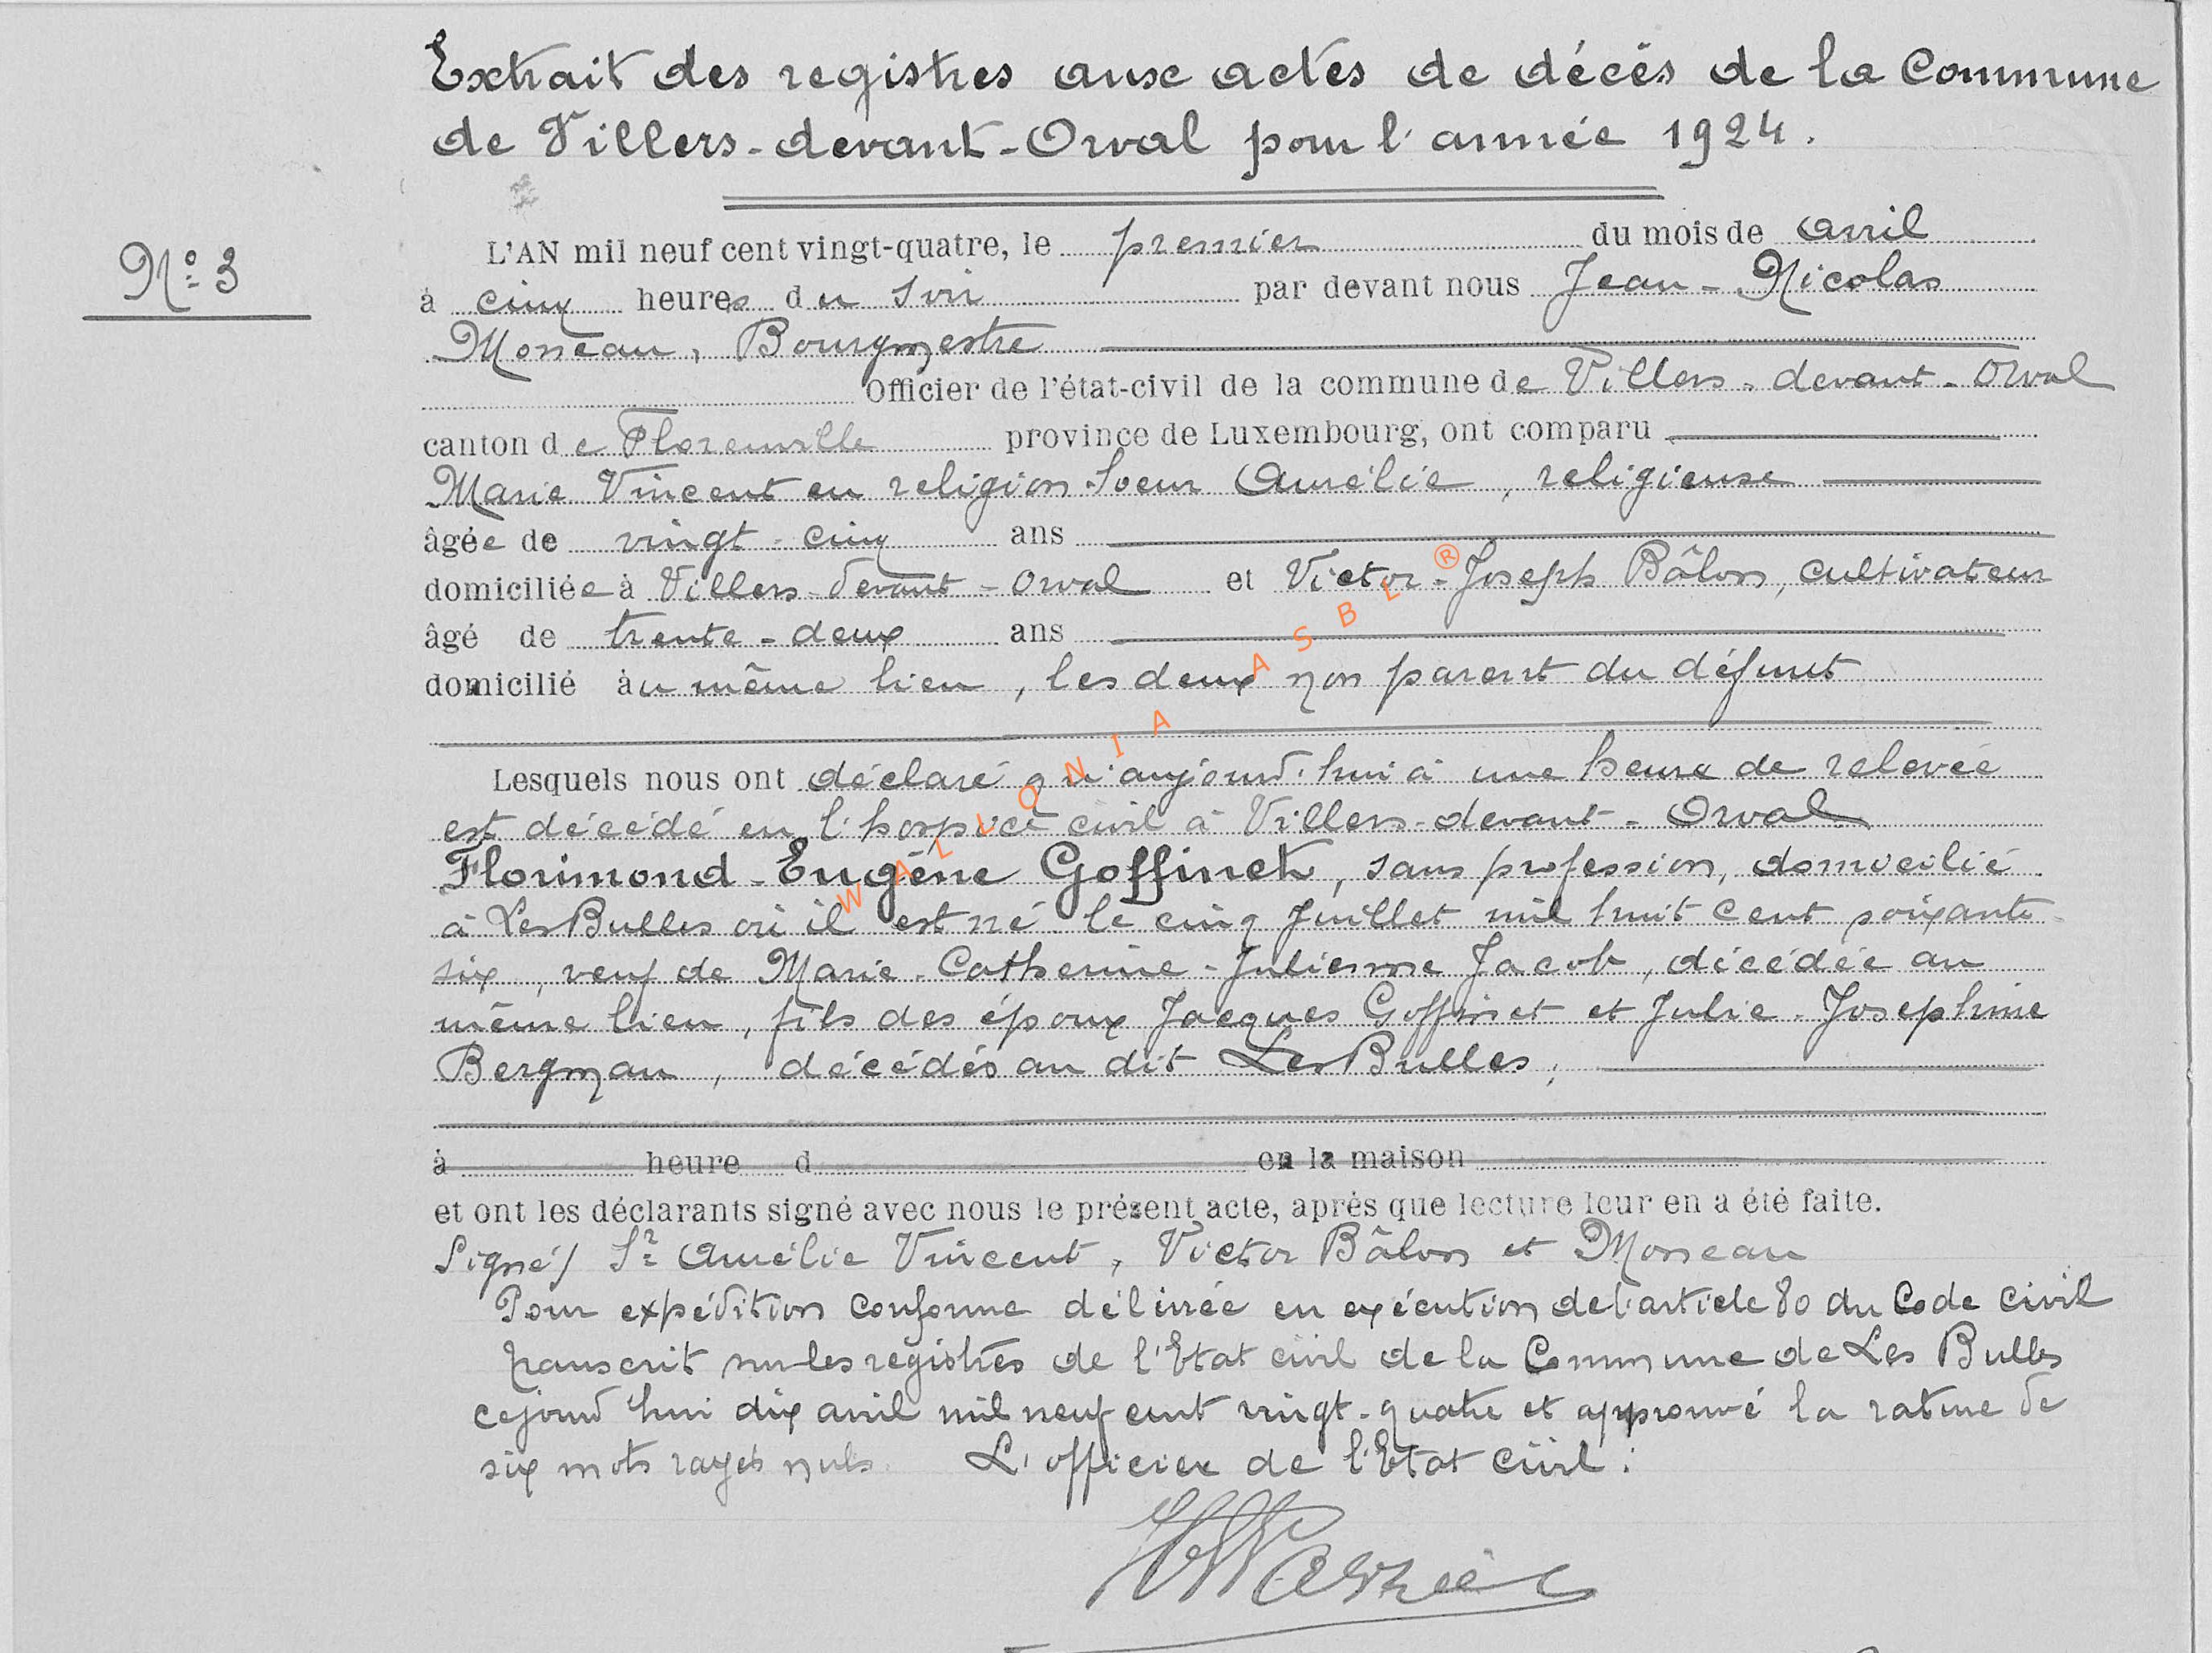 Extrait des registres aux actes de décès de la Commune
de Villers-devant-Orval pour l'année 1924.
N°3
L'AN mil neuf cent vingt-quatre, le premier du mois de avril
à cinq heures du soir par devant nous Jean-Nicolas
Moneau, Bourgmestre
Officier de l'état-civil de la commune de Villers-devant-Orval
canton de Florenville province de Luxembourg, ont comparu
Marie Vincent en religion Soeur Aurélie, religieuse
âgée de vingt-cinq ans
domiciliée à Villers-devant-Orval et Victor-Joseph Bâlon, cultivateur
âgé de trente-deux ans
domicilié au même lieu, les deux non parent du défunt
Lesquels nous ont déclaré qu'aujourd'hui à une heure de relevée
est décédé en l'hospice civil à Villers-devant-Orval
Florimond-Eugène Goffinet, sans profession, domicilié
à Les Bulles où il est né le cinq Juillet mil huit cent soixante-
six, veuf de Marie-Catherine-Julienne Jacob, décédée au
même lieu, fils des époux Jacques Goffinet et Julie-Josephine
Bergman, décédés au dit Les Bulles;
à heure d en la maison
et ont les déclarants signé avec nous le présent acte, après que lecture leur en a été faite.
Signé/ Sr Aurélie Vincent, Victor Bâlon et Moneau
Pour expédition conforme délivrée en exécution de l'article 80 du Code civil
transcrit sur les registres de l'Etat civil de la Commune de Les Bulles
cejourd'hui dix avril mil neuf cent vingt-quatre et approuvé la rature de
six mots rayés nuls. L'officier de l'Etat civil:
WALLONIA ASBL ®